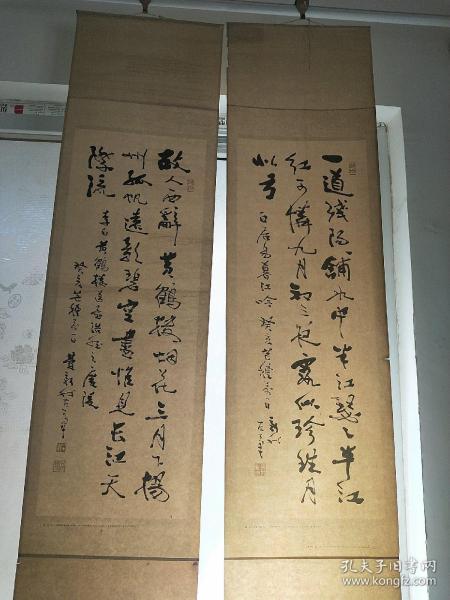 一道残阳铺水中半江瑟之半江
红可怜九月初三夜露似珍珠月
似弓
白居易暮江吟 癸亥
故人西辞黄鹤楼烟花三月下扬
州孤帆远影碧空尽惟见长江天
际流
李白黄鹤楼送孟浩然之广陵
癸亥
孔夫子旧书网
www.kongfz.com